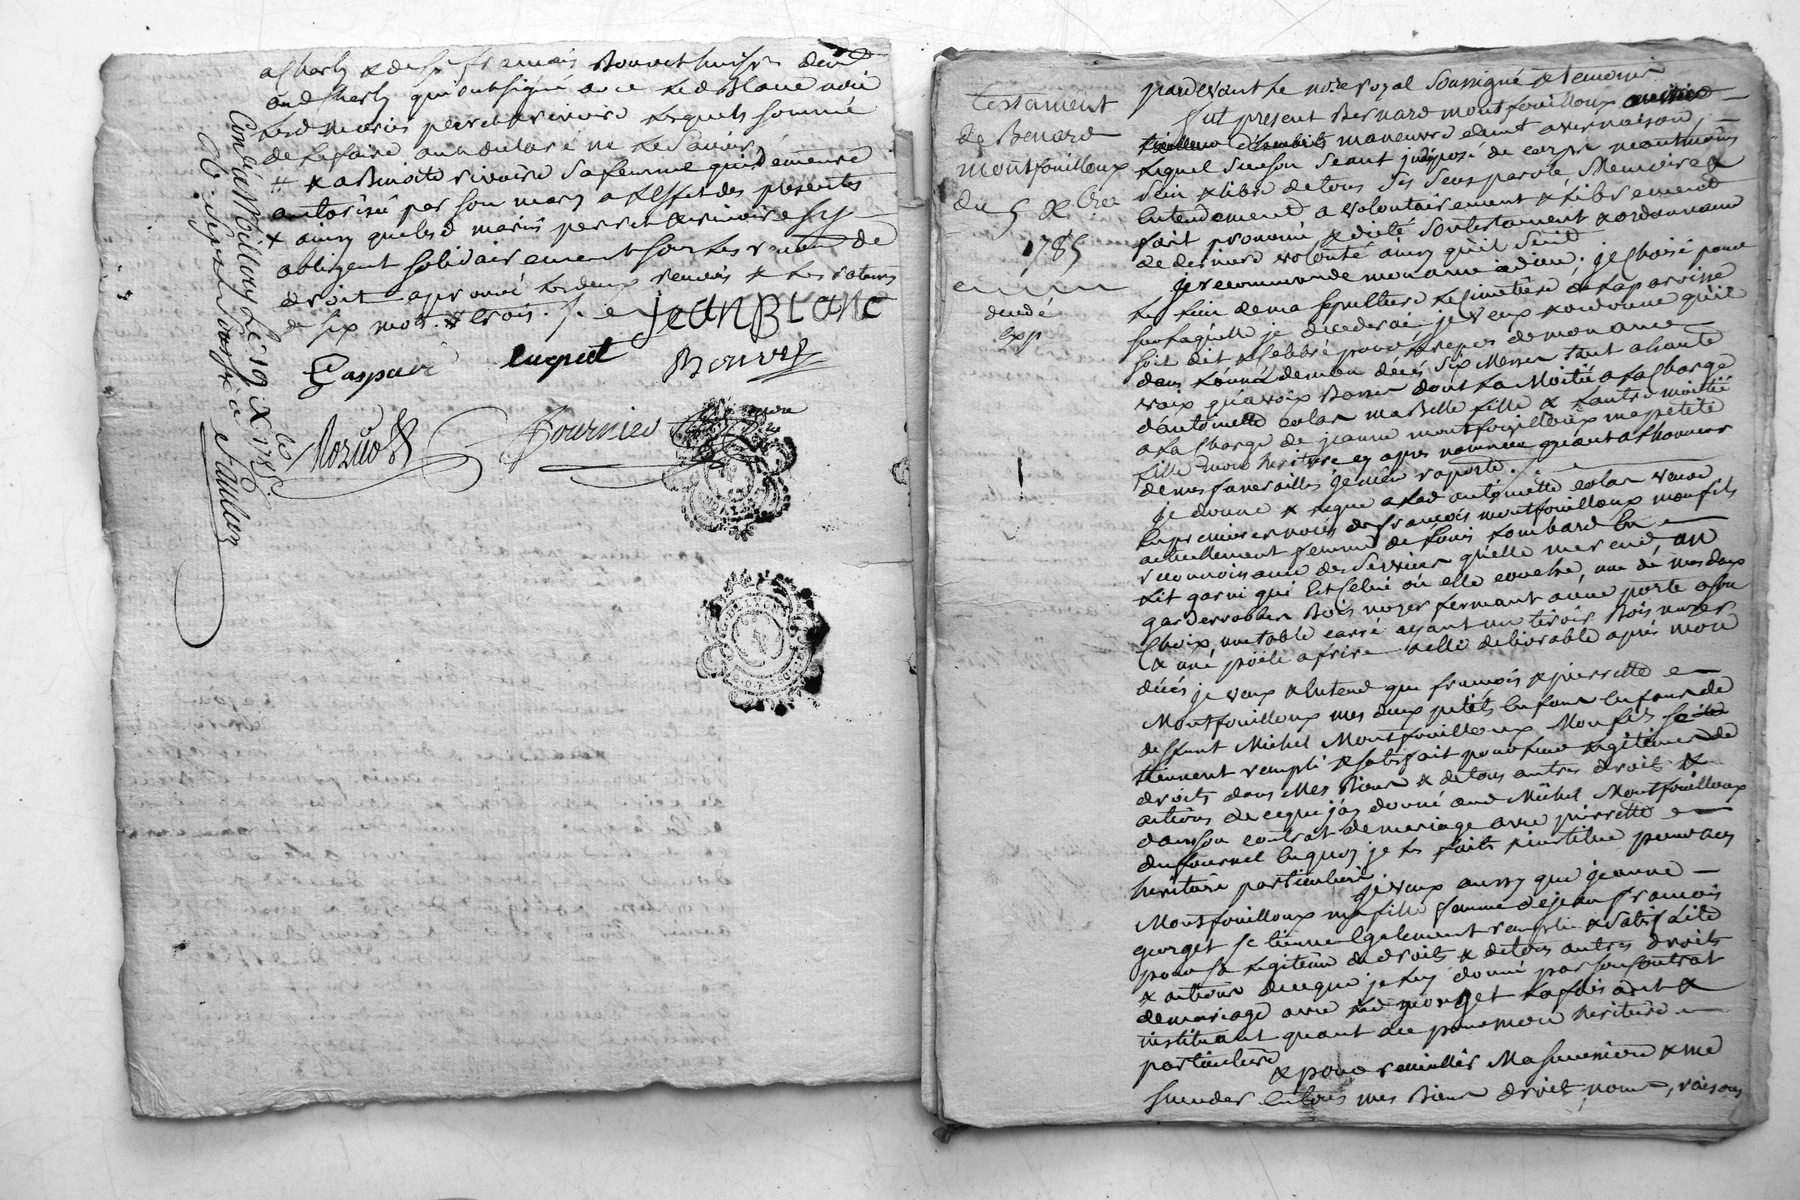 a Charly & de Sr francois Bonnet huissier
aud Charly qui ont signé avec led Blanc non
lesd mariés perret & rivoire lesquels sommé
de le faire ont declaré ne le savoir
& a Benoite rivoire sa femme qui demeure
autorisé par son mary a l'effet des presentes
& ainsy que lesd mariés perret & rivoire sy
obligent solidairement sous les
droit aprouvé les deux renvois & les ratures
de six mots
Jean Blanc
Gaspard
luquet
Bonnet
Fournier
Con a Millery Le 19 Xbre 1785
sept sous six d
Testament
de Benard
montfouilloux
du 5 Xbre
1785
exp
pardevant Le nore royal soussigné & temoins
fut present Bernard montfouilloux
maneuvre elant a vernaison
Lequel de son gré etant indisposé de corps neantmoins
sein & libre de tous ses sens parole Memoire &
Entendement a volontairement & librement
fait prononcé & dicté son testament & ordonnance
de derniere volonté ainsy qu'il suit
je recommende mon ame a dieu, je choisi pour
le lieu de ma sepulture le simetiere de la paroisse
sur laquelle je decederai, je veux & ordonne qu'il
soit dit & celebré pour le repos de mon ame
dans l'année de mon décés six Messes tant a haute
voix qu'a voix Basse dont La Moitié a la charge
d'antoinette colas ma Belle fille & l'autre moitié
a la charge de jeanne montfouilloux ma petite
fille mon heritiere cy apres nommée quant aux honneurs
de mes funerailles je m'en raporte.
je donne & legue a lad antoinette colas veuve
en premieres noces de francois montfouilloux mon fils
actuellement femme de Louis Lombard En
reconnoissance des services qu'elle me rend, un
Lit garni qui est celui ou elle couche, une de mes deux
garderobbes Bois noyer fermant a une porte a son
Choix, une table carré ayant un tiroir Bois noyer
& une poële a frire le tout delivrable après mon
décés je veux & entend que francois & pierrette
Montfouilloux mes deux petits Enfans Enfans de
deffunt Michel Montfouilloux Mon fils se
tiennent rempli & satisfait pour leur legitime de
droits dans Mes Biens & de tous autres droits &
actions de ce que j'ay donné aud Michel Montfouilloux
dans son contrat de mariage avec pierrette
dufournel En quoy je les faits & institue pour mes
heritiers particuliers
je veux aussy que jeanne
Montfouilloux ma fille femme de jean francois
gorget se tienne Egalement remplie & satisfaite
pour sa legitime de droits & de tous autres droits
& actions de ce que je luy donné par son Contrat
de mariage avec led gorget La fais ant &
instituant quant a ce pour mon heritiere
particuliere
& pour recueillir Ma succession & me
succeder En tous mes Biens droits, noms, raisons